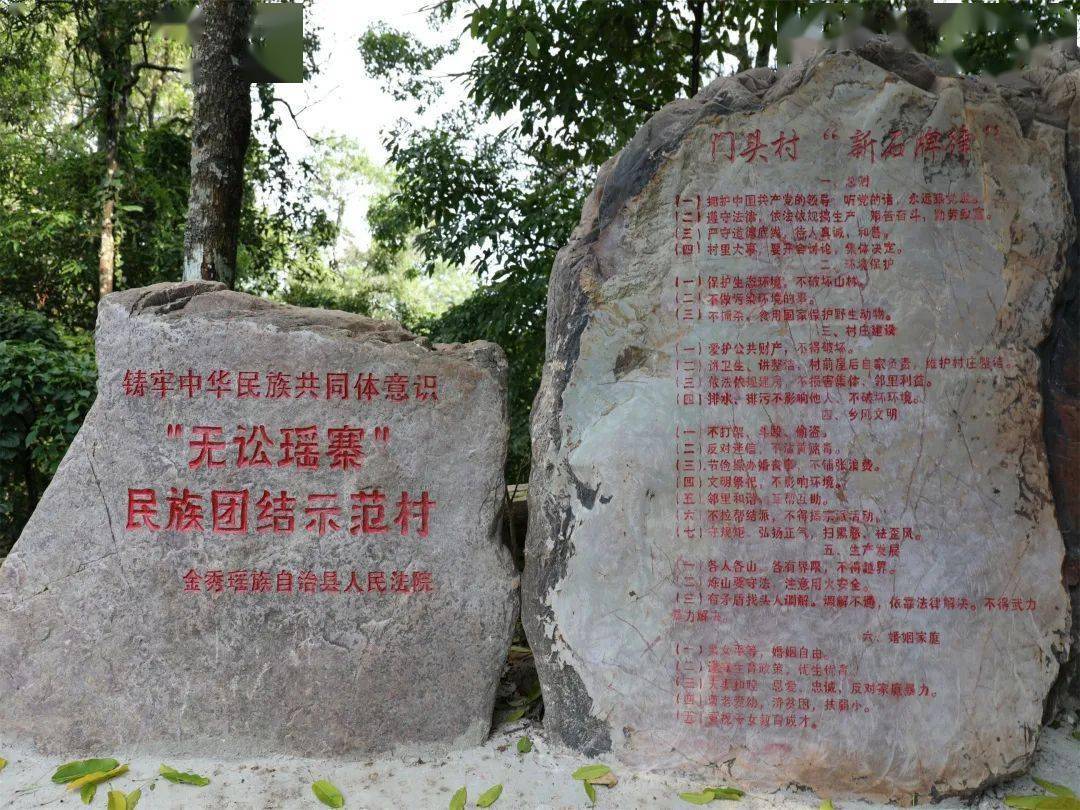 铸牢中华民族共同体意识
"无讼瑶寨"
民族团结示范村
金秀瑶族自治县人民法院
门头村“新石牌律”
一、总则
(一)拥护中国共产党的领导，听党的话，永远跟党走。
(二)遵守法律，依法依规搞生产，艰苦奋斗，勤劳致富。
(三)严守道德底线，待人真诚，和善。
(四)村里大事，要开会讨论，集体决定。
二、环境保护
(一)保护生态环境，不破坏山林。
(二)不做污染环境的事。
(三)不捕杀、食用国家保护野生动物。
三、村庄建设
(一)爱护公共财产，不得破坏。
(二)讲卫生、讲整洁，村前屋后自家负责，维护村庄整洁。
(三)依法依规建房，不损害集体、邻里利益。
(四)排水、排污不影响他人、不破坏环境。
四、乡风文明
(一)不打架、斗殴、偷盗。
(二)反对迷信，不沾黄赌毒。
(三)节俭操办婚丧事，不铺张浪费。
(四)文明祭祀，不影响环境。
(五)邻里和谐，互帮互助。
(六)不拉帮结派，不得搞宗派活动。
(七)守规矩，弘扬正气，扫黑恶、祛歪风。
五、生产发展
(一)各人各山，各有界限，不得越界。
(二)炼山要守法，注意用火安全。
(三)有矛盾找头人调解。调解不通，依靠法律解决。不得武力
暴力解决。
六、婚姻家庭
(一)男女平等，婚姻自由。
(二)遵守生育政策，优生优育。
(三)夫妻和睦，恩爱，忠诚，反对家庭暴力。
(四)尊老爱幼，济贫困，扶弱小。
(五)重视子女教育成才。